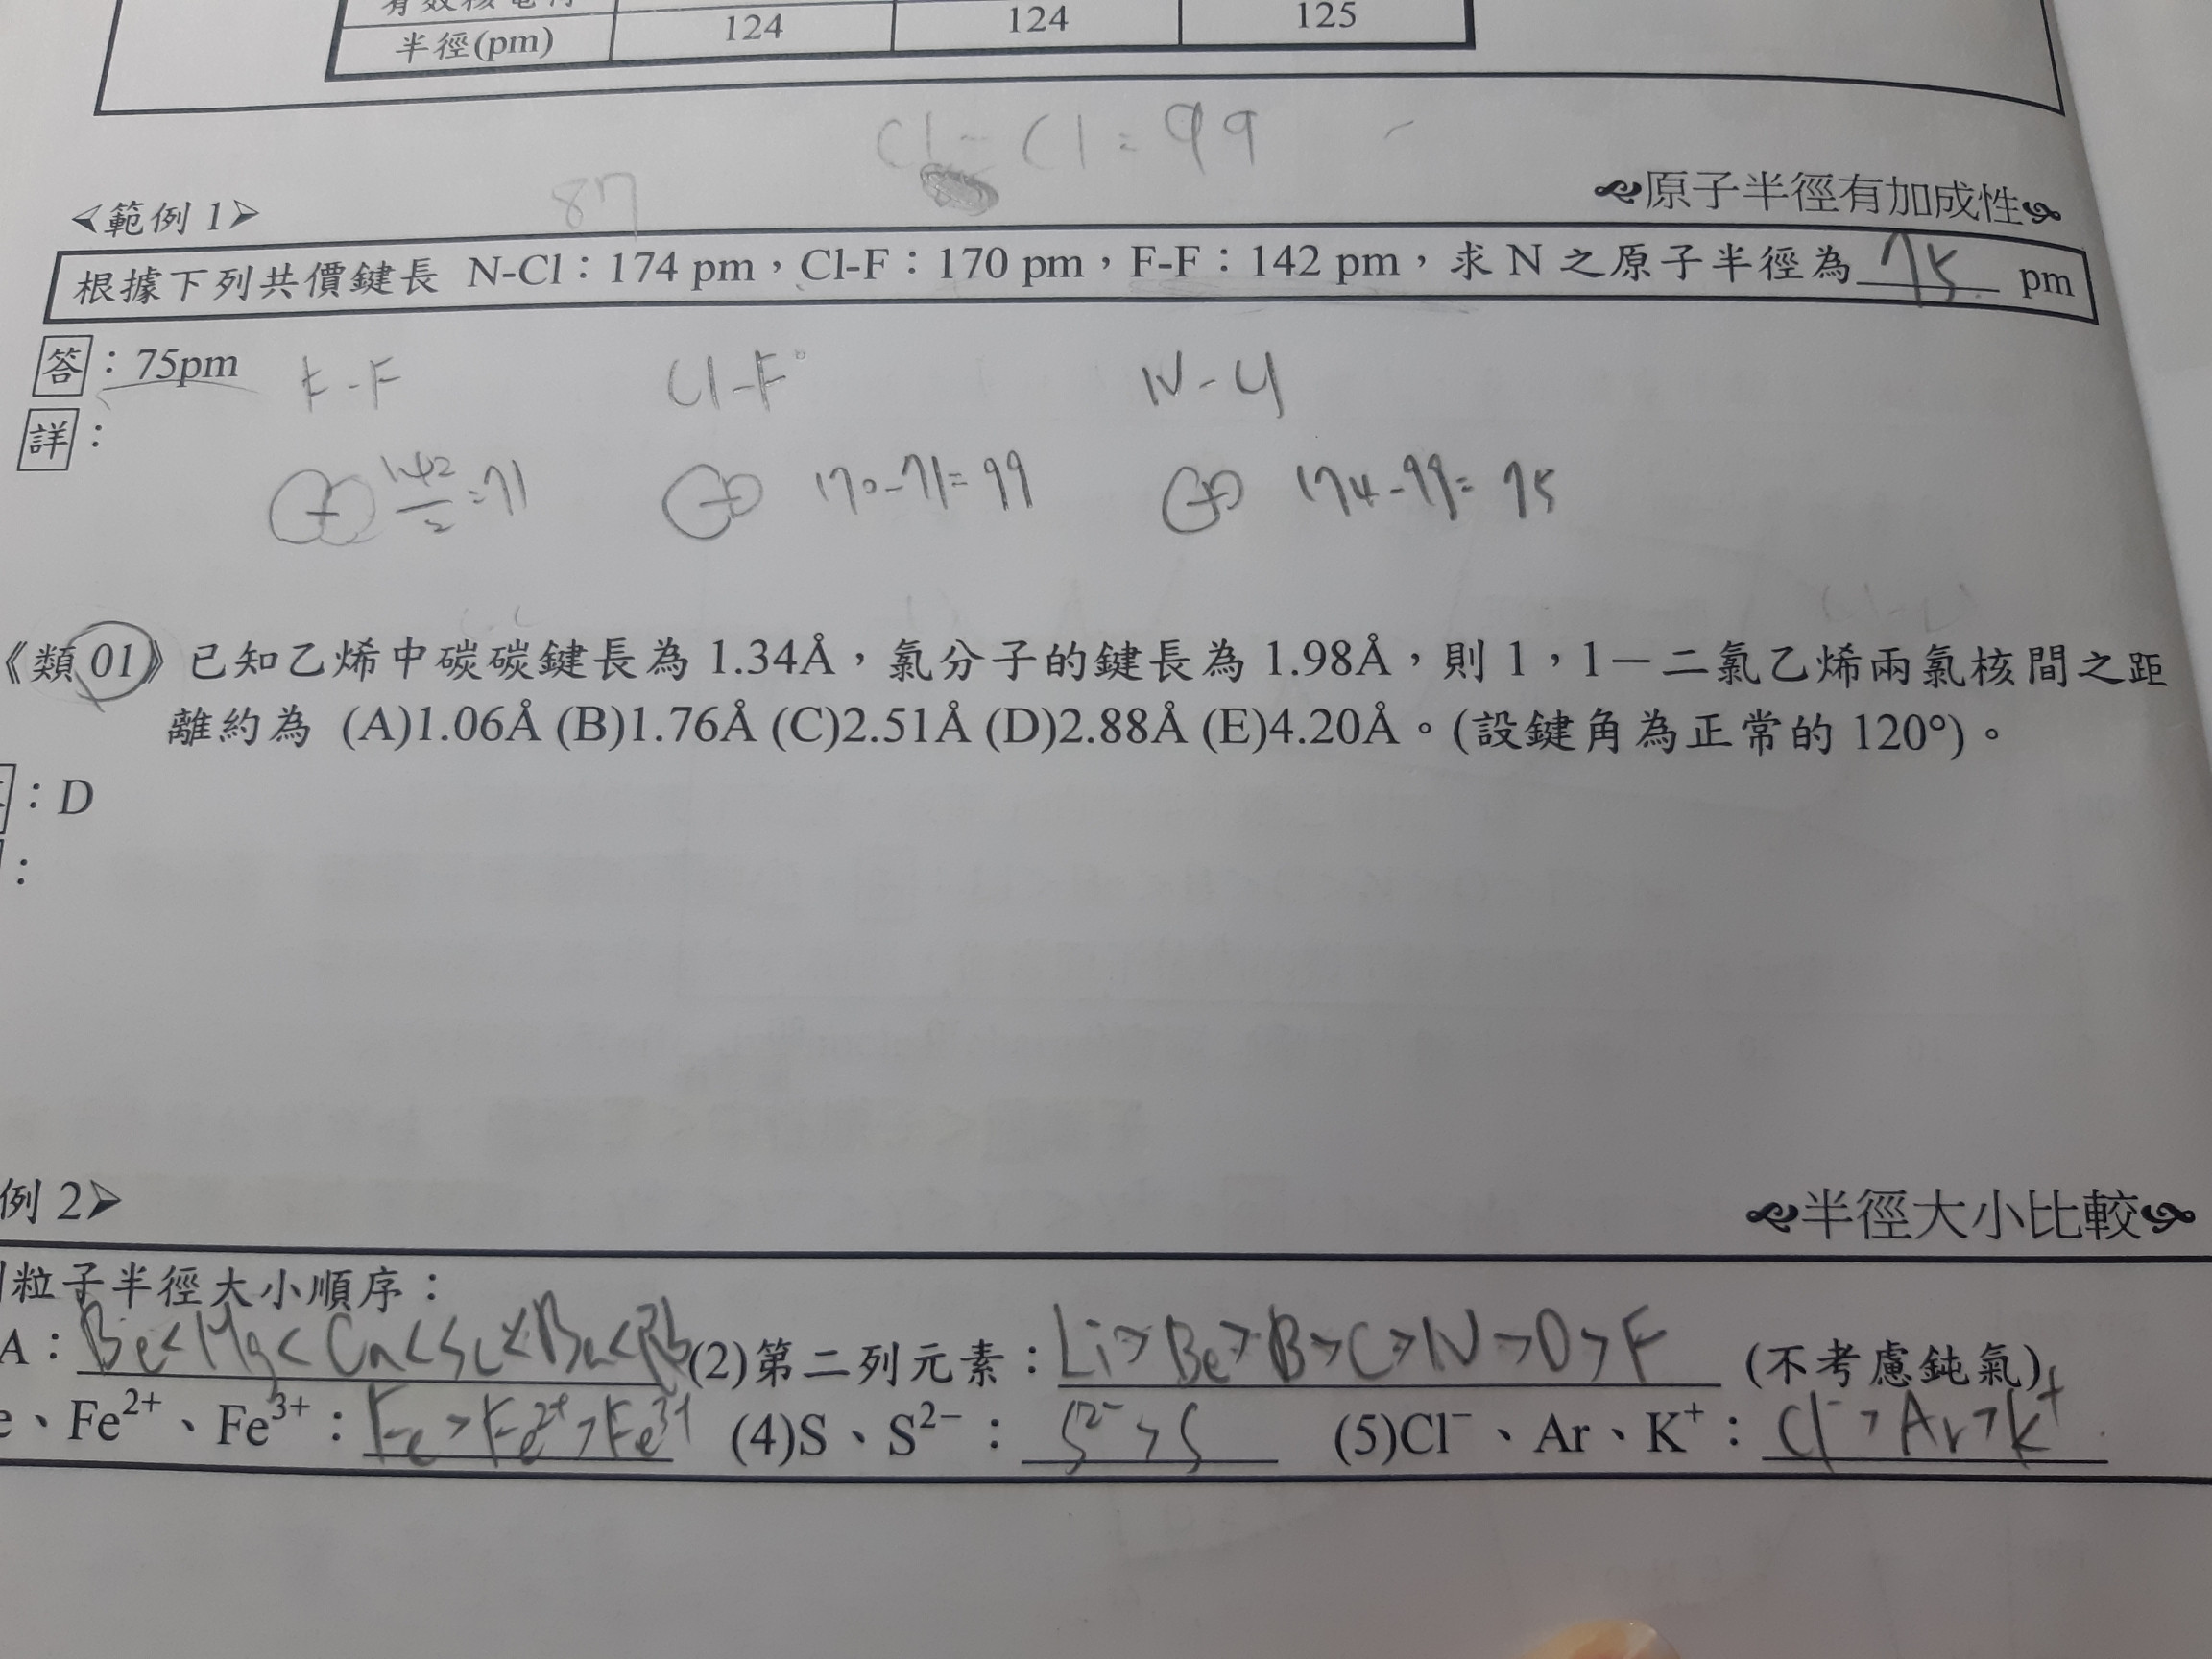 半徑(pm) 124 124 125
Cl - Cl = 99
87
<範例 1> 原子半徑有加成性
根據下列共價鍵長 N-Cl：174 pm，Cl-F：170 pm，F-F：142 pm，求 N 之原子半徑為 75 pm
答：75pm
F - F Cl - F N - Cl
詳：
142/2 = 71 170 - 71 = 99 174 - 99 = 75
《類 01》已知乙烯中碳碳鍵長為 1.34Å，氯分子的鍵長為 1.98Å，則 1，1－二氯乙烯兩氯核間之距
離約為 (A)1.06Å (B)1.76Å (C)2.51Å (D)2.88Å (E)4.20Å。(設鍵角為正常的 120°)。
：D
：
例 2> 半徑大小比較
粒子半徑大小順序：
A：Be < Mg < Ca < Sr < Ba < Rb (2)第二列元素：Li > Be > B > C > N > O > F (不考慮鈍氣)
e、Fe²⁺、Fe³⁺：Fe > Fe²⁺ > Fe³⁺ (4)S、S²⁻：S²⁻ > S (5)Cl⁻、Ar、K⁺：Cl⁻ > Ar > K⁺